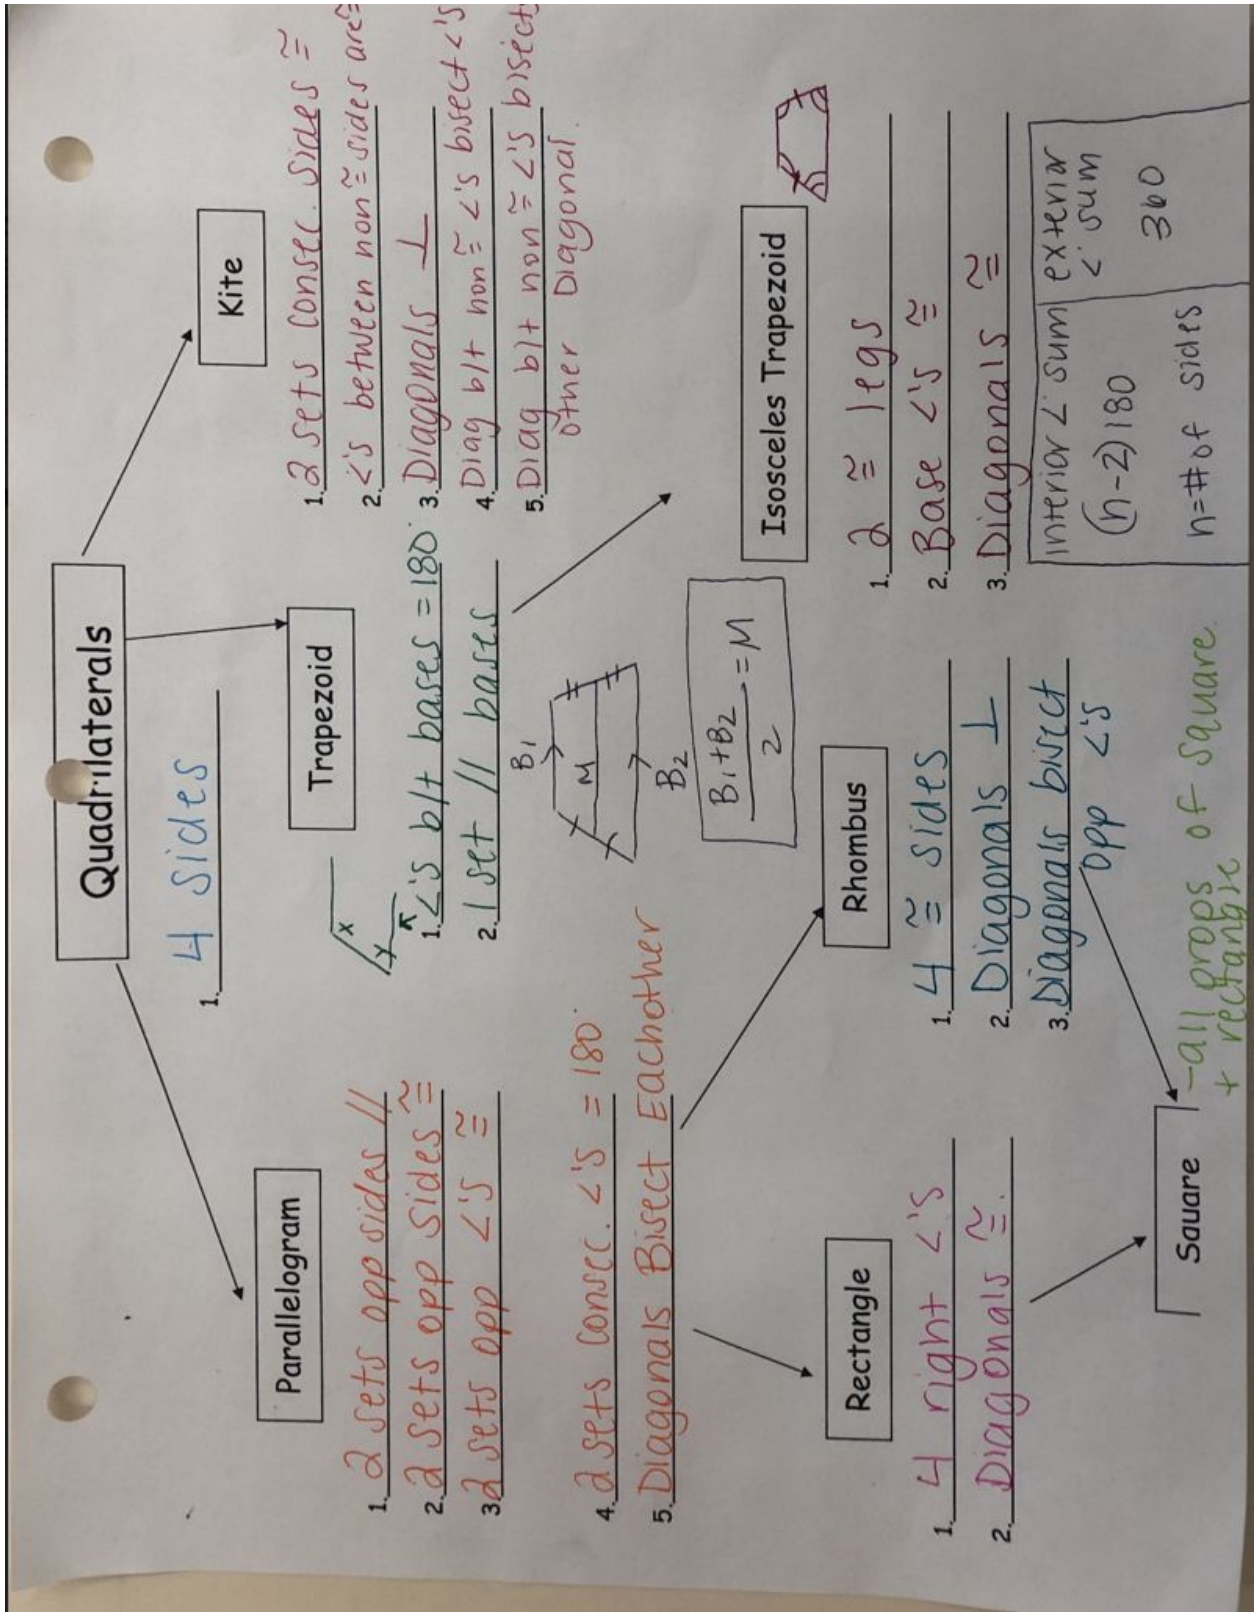 Quadrilaterals
1. 4 sides
Parallelogram
1. 2 sets opp sides //
2. 2 sets opp sides ≅
3. 2 sets opp <'s ≅
4. 2 sets consec. <'s = 180°
5. Diagonals Bisect Eachother
Trapezoid
x
y
1. <'s b/t bases = 180°
2. 1 set // bases
B1
M
B2
B1+B2
2
= M
Kite
1. 2 sets consec. sides ≅
2. <'s between non ≅ sides are ≅
3. Diagonals ⊥
4. Diag b/t non ≅ <'s bisect <'s
5. Diag b/t non ≅ <'s bisects
other Diagonal.
Isosceles Trapezoid
1. 2 ≅ legs
2. Base <'s ≅
3. Diagonals ≅
Rectangle
1. 4 right <'s
2. Diagonals ≅.
Rhombus
1. 4 ≅ sides
2. Diagonals ⊥
3. Diagonals bisect
opp <'s
interior < sum
(n-2)180
n=# of sides
exterior
< sum
360
Square
-all props of square
+ rectangle